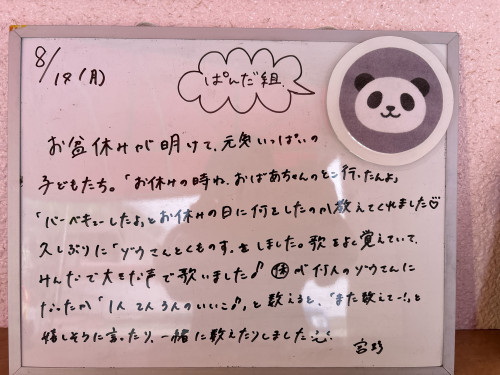 8/18(月)
ぱんだ組
お盆休みが明けて、元気いっぱいの
子どもたち。「お休みの時ね、おばあちゃんのとこ行ったんよ」
「バーベキューしたよ」とお休みの日に何をしたのか教えてくれました♡
久しぶりに「ゾウさんとくものす」をしました。歌をよく覚えていて、
みんなで大きな声で歌いました♪ 休が何人のゾウさんに
なったか「1人 2人 3人のいいこ♪」と数えると、「また数えてー!」と
嬉しそうに言ったり、一緒に数えたりしました